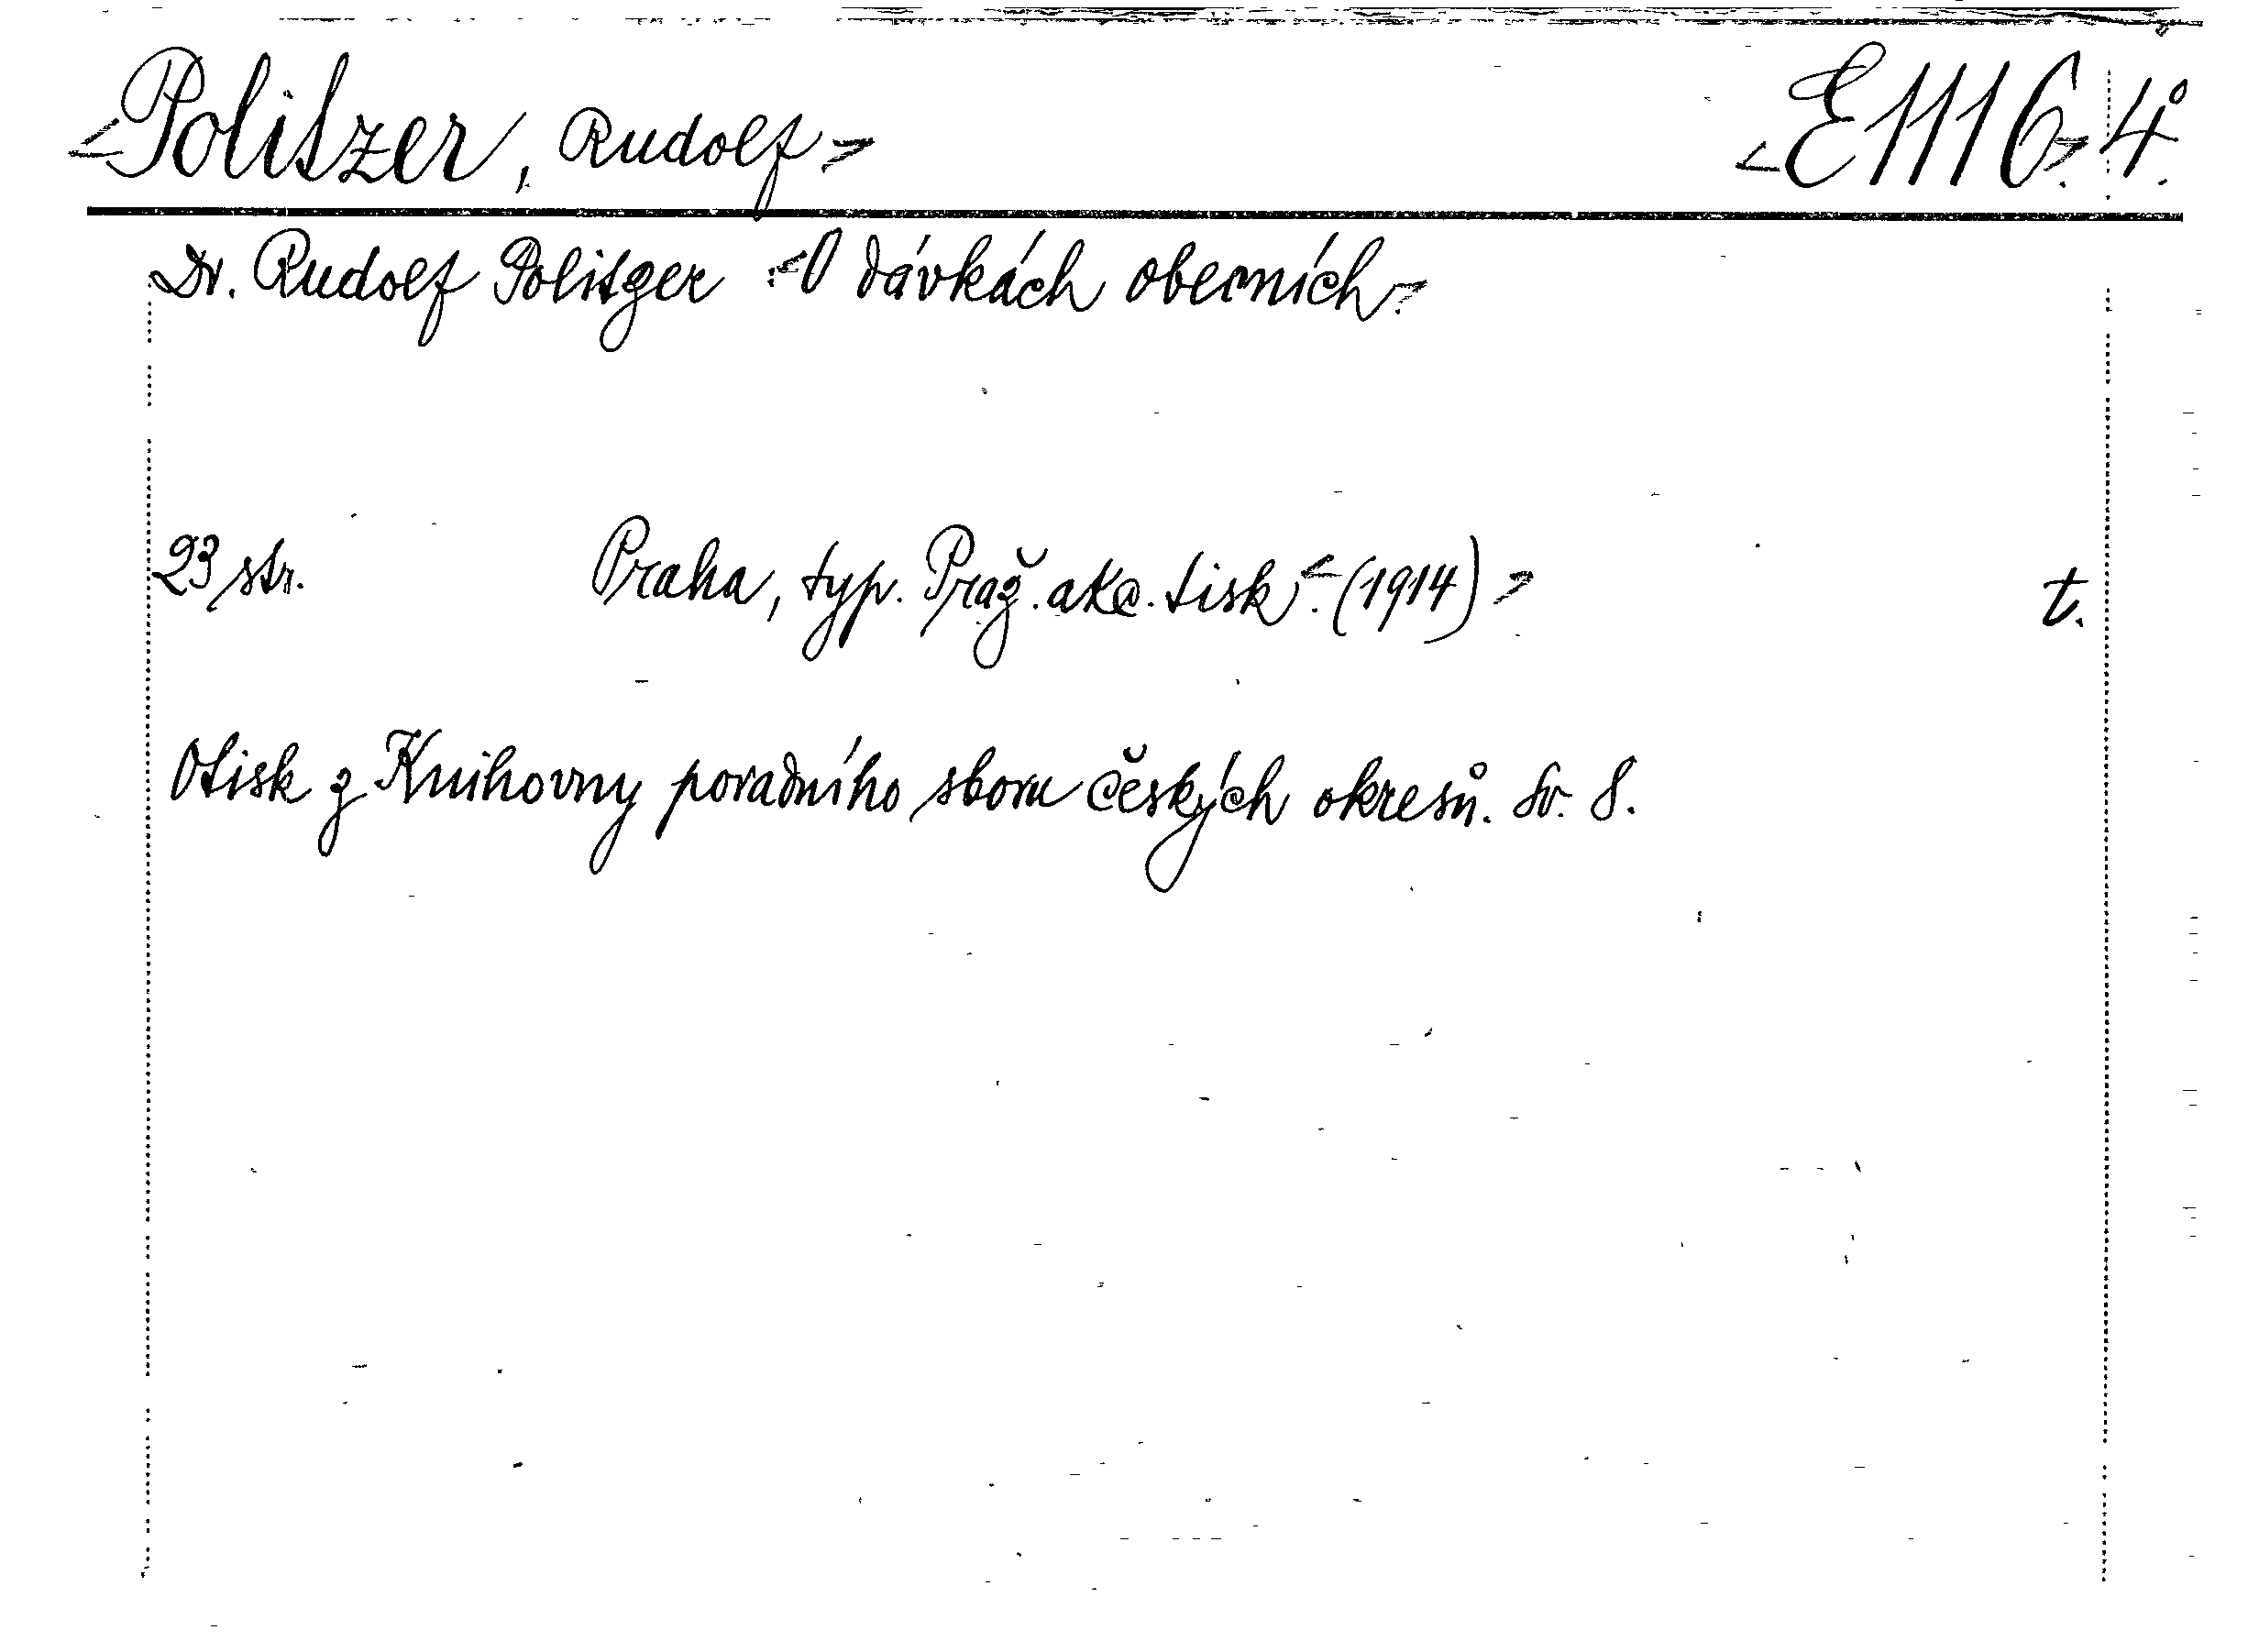 <Politzer, Rudolf> <E 1116.> 4°.
Dr. Rudolf Politzer <O dávkách obecních.>
23 str. Praha, typ. Praž. akc. tisk. <(1914)> t.
Otisk z Knihovny poradního sboru českých okresů. Sv. 8.